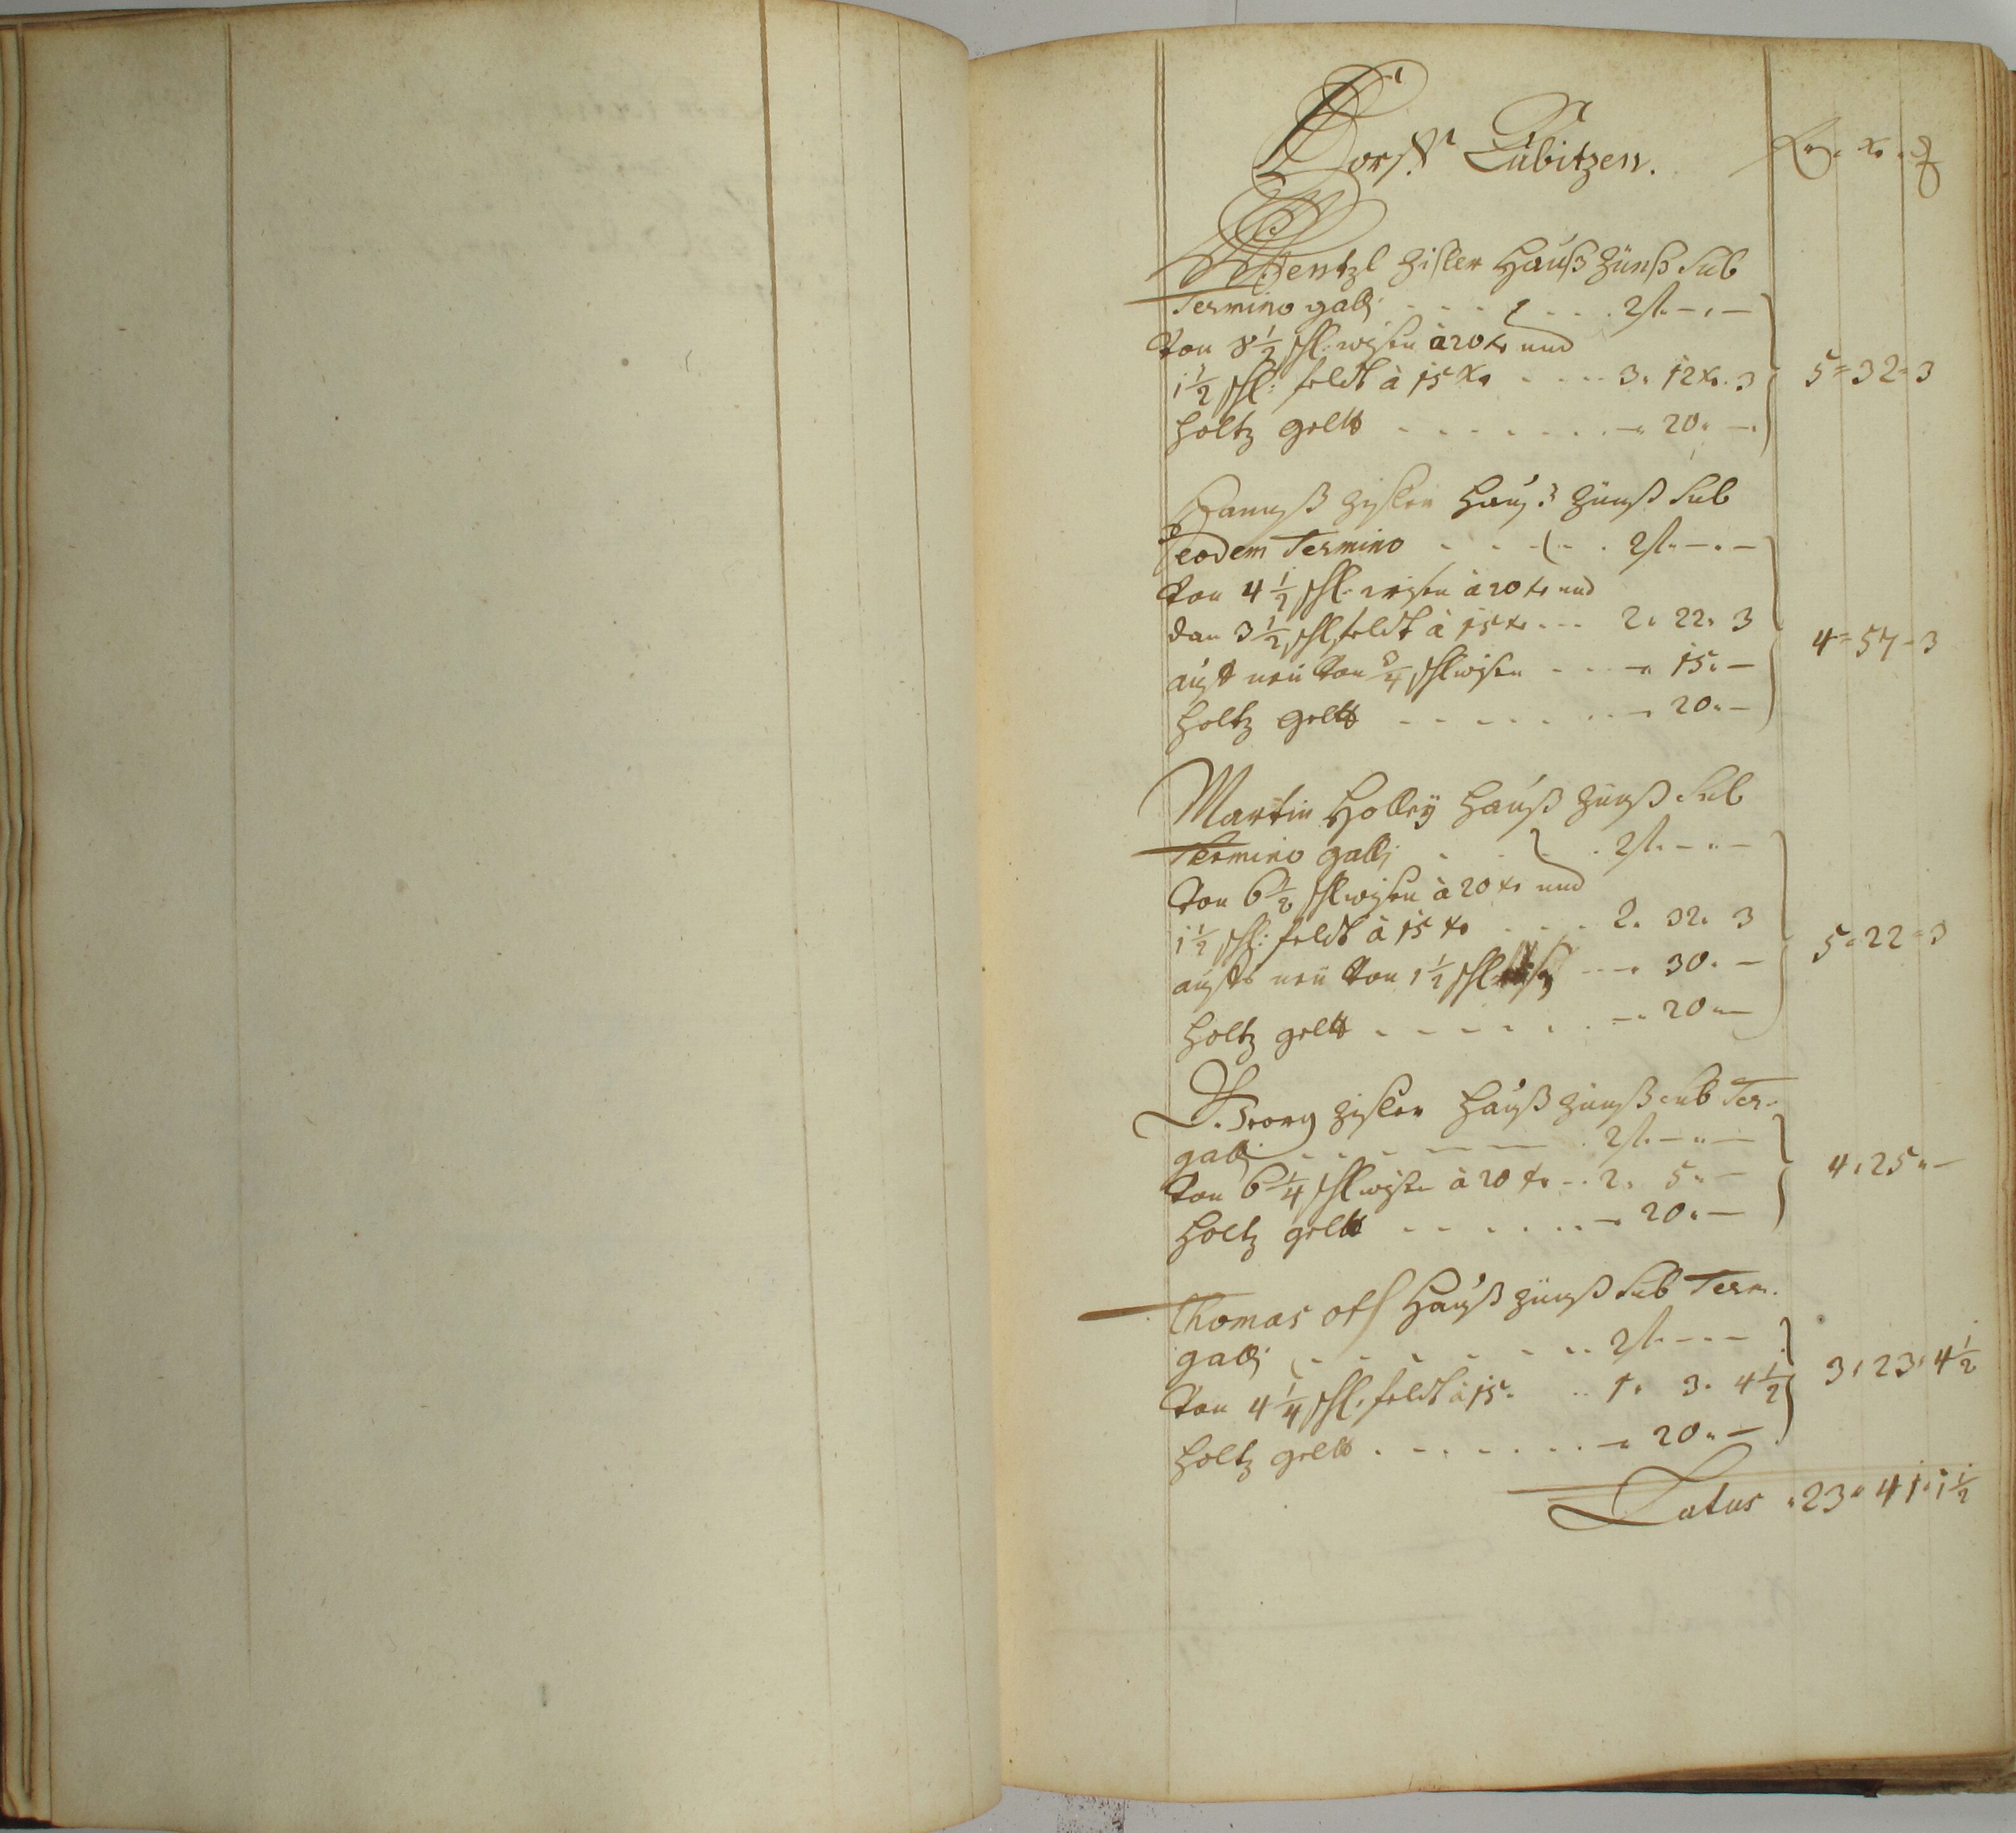 Dorff Lubitzen. fl. xr. ₰
Wentzl Zisler Hauß Zünß Sub
Termino galli . . . . 2 fl. — . —
Von 8 1/2 schl: wisen à 20 xr und
1 1/2 schl: feldt à 15 xr . . . . 3. 12 xr. 3 5 = 32 = 3
Holtz geltt . . . . . . . — . 20. — .
Hannß Zisler Hauß Zünß Sub
eodem Termino . . . . 2 fl. — . —
Von 4 1/2 schl: wisen à 20 xr und
dan 3 1/2 schl feldt à 15 xr . . . 2. 22. 3 4 = 57 = 3
auffs neü Von 3/4 schl wisen . . . — . 15. —
Holtz geltt . . . . . . . — . 20. —
Martin Holley Hauß Zünß Sub
Termino galli . . . . 2 fl. — . —
Von 6 1/2 schl wisen à 20 xr und
1 1/2 schl: feldt à 15 xr . . . . 2. 32. 3 5 = 22 = 3
auffs neü Von 1 1/2 schl . . . — . 30. —
Holtz geltt . . . . . . — . 20. —
Georg Zisler Hauß Zünß sub Ter.
galli . . . . . . 2 fl. — . —
Von 6 1/4 schl wisen à 20 xr . . 2. 5. — 4. 25. —
Holtz geltt . . . . . . — . 20. —
Thomas Hauß Zünß Sub Term.
galli . . . . . . . 2 fl. — . —
Von 4 1/4 schl. feldt à 15. . . 1. 3. 4 1/2 3. 23. 4 1/2
Holtz geltt . . . . . . — . 20. —
Latus . 23. 41. 1 1/2